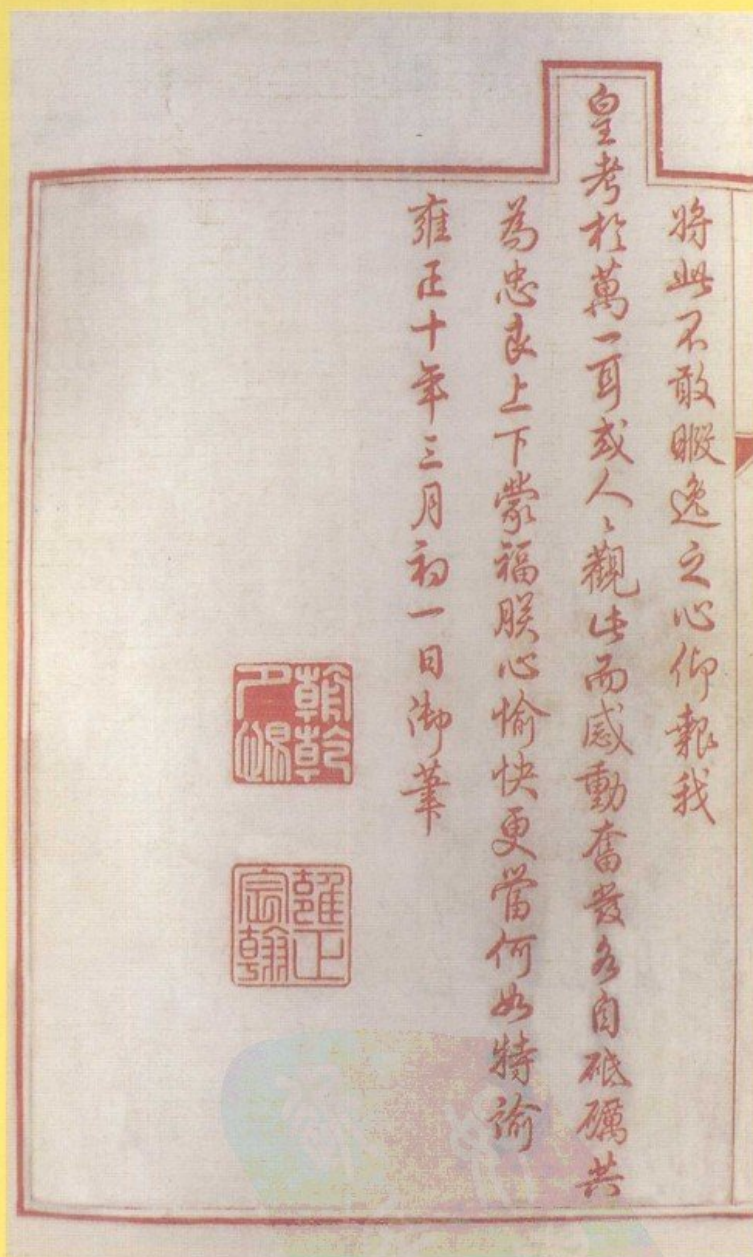 將此不敢暇逸之心仰報我
皇考於萬一耳或人々觀此而感動奮發各自砥礪共
為忠良上下蒙福朕心愉快更當何如特諭
雍正十年三月初一日御筆
朝乾夕惕
雍正宸翰